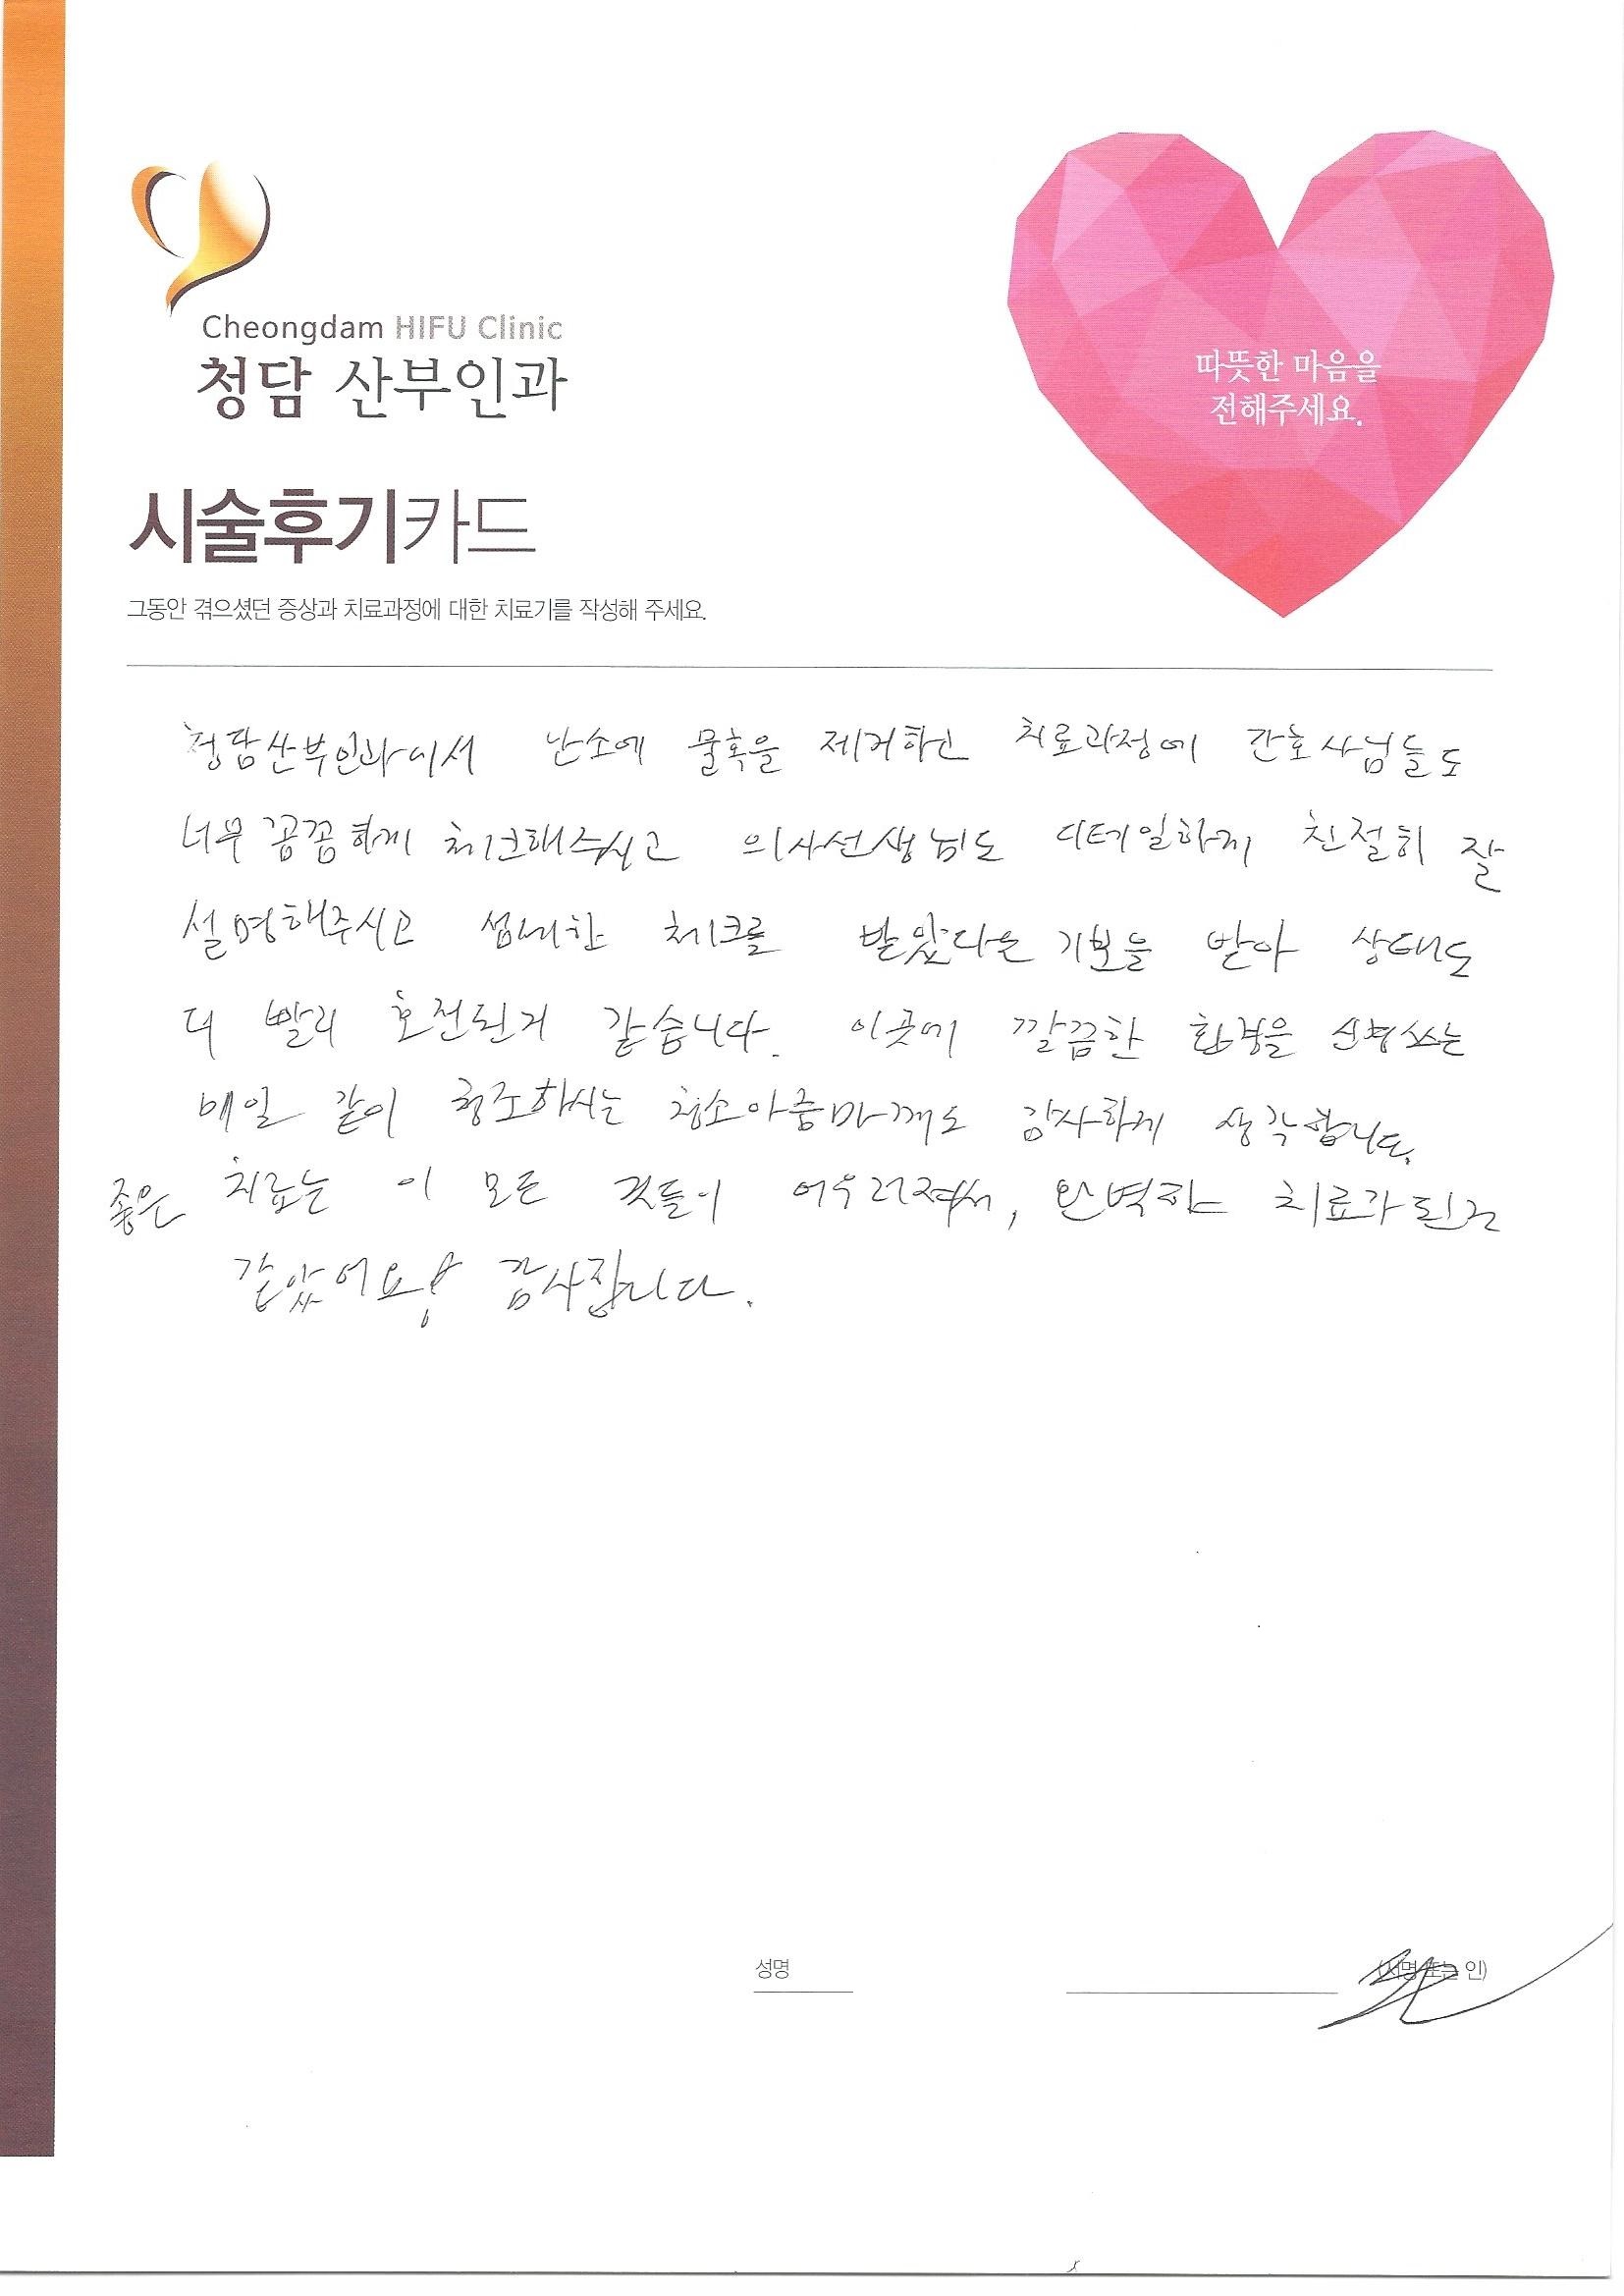 Cheongdam HIFU Clinic
청담 산부인과
따뜻한 마음을
전해주세요.
시술후기카드
그동안 겪으셨던 증상과 치료과정에 대한 치료기를 작성해 주세요.
청담산부인과에서 난소에 물혹을 제거하신 치료과정에 간호사님들도
너무 꼼꼼하게 체크해주시고 의사선생님도 디테일하게 친절히 잘
설명해주시고 섬세한 체크를 받았다는 기분을 받아 상태도
더 빨리 호전된거 같습니다. 이곳에 깔끔한 환경을 신경쓰는
매일 같이 청소하시는 청소아줌마께도 감사하게 생각합니다.
좋은 치료는 이 모든 것들이 어우러져서, 완벽한 치료가 된것
같았어요! 감사합니다.
성명
(서명 또는 인)